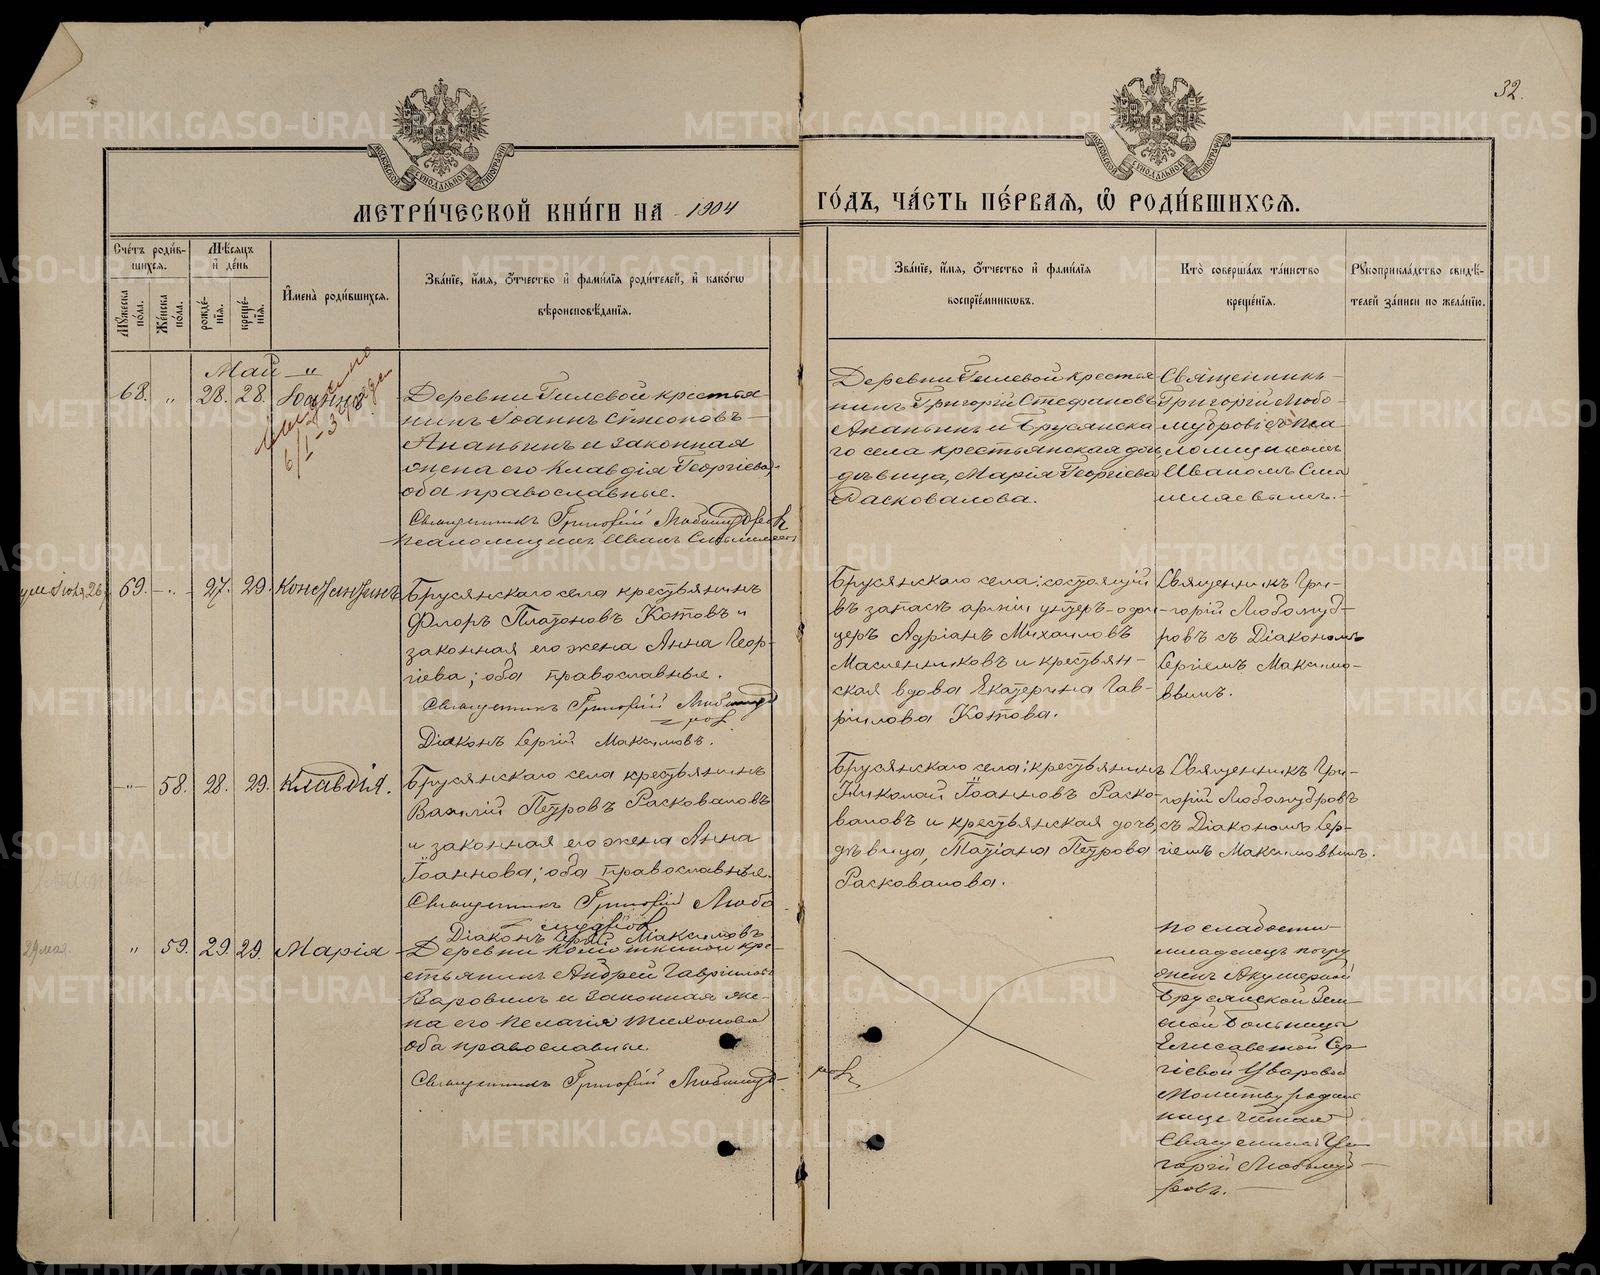 32.
МЕТРИ́ЧЕСКОЙ КНИ́ГИ НА 1904
ГО́ДЪ, ЧА́СТЬ ПЕ́РВАѦ, Ѡ҆ РОДИ́ВШИХСѦ.
Сче́тъ роди́в-
шихсѧ.
Мꙋ́жеска по́ла.
Же́нска по́ла.
Мѣ́сѧцъ
и҆ де́нь
рожде́-
нїѧ.
креще́-
нїѧ.
И҆мена̀ роди́вшихсѧ.
Зва́нїе, и҆́мѧ, ѻ҆́тчество и҆ фами́лїѧ роди́телей, и҆ како́гѡ
вѣроисповѣ́данїѧ.
Зва́нїе, и҆́мѧ, ѻ҆́тчество и҆ фами́лїѧ
воспрїе́мникѡвъ.
Кто̀ соверша́лъ та́инство
креще́нїѧ.
Рꙋкоприкла́дство свидѣ́-
телей за́писи по жела́нїю.
Май "
68. " 28. 28. Іоаннъ.
Деревни Гилевой крестья-
нинъ Іоаннъ Сѷмеоновъ
Ананьинъ и законная
жена его Клавдія Георгіева,
оба православные.
Священникъ Григорій Любомудровъ
Псаломщикъ Иванъ
Деревни Гилевой крестья-
нинъ Григорій Стефановъ
Ананьинъ и Брусянска-
го села крестьянская
дѣвица, Марія Георгіева
Расковалова.
Священникъ
Григорій Любо-
мудровъ съ Пса-
ломщикомъ
Иваномъ
69. " 27. 29. Константинъ
Брусянскаго села крестьянинъ
Флоръ Платоновъ Котовъ и
законная его жена Анна Геор-
гіева; оба православные.
Священникъ Григорій Любомуд-
ровъ
Діаконъ Сергій Максимовъ.
Брусянскаго села: состоящій
въ запасѣ арміи унтеръ-офи-
церъ Адріанъ Михаиловъ
Масленниковъ и крестьян-
ская вдова Екатерина Гав-
ріилова Котова.
Священникъ Гри-
горій Любомуд-
ровъ съ Діакономъ
Сергіемъ Максимо-
вымъ.
" 58. 28. 29. Клавдія.
Брусянскаго села крестьянинъ
Василій Петровъ Расковаловъ
и законная его жена Анна
Іоаннова; оба православные.
Священникъ Григорій Любо-
мудровъ
Діаконъ Сергій Максимовъ
Брусянскаго села: крестьянинъ
Николай Іоанновъ Раско-
валовъ и крестьянская дочь,
дѣвица, Татіана Петрова
Расковалова.
Священникъ Гри-
горій Любомудровъ
съ Діакономъ Сер-
гіемъ Максимовымъ.
29 мая.
" 59. 29. 29. Марія
Деревни кре-
стьянинъ Андрей Гавріиловъ
Варовинъ и законная же-
на его Пелагія Тихонова
оба православные.
Священникъ Григорій Любомуд-
ровъ
По слабости
младенецъ погру-
женъ Акушеркой
Брусянской Зем-
ской Больницы
Елисаветой Сер-
гіевой Уваровой
Молитву родиль-
ницѣ читалъ
Священникъ Гри-
горій Любомуд-
ровъ.
METRIKI.GASO-URAL.RU